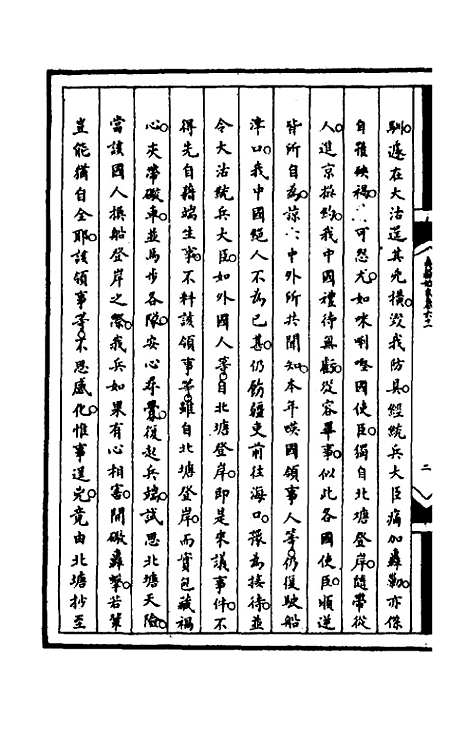 馴遽在大沽逞其兇橫毀我防具經統兵大臣痛加轟勦亦係
自罹殃禍、、可怨尤如咪唎㗎國使臣獨自北塘登岸隨帶從
人進京換約我中國禮待無虧從容畢事似此各國使臣順逆
皆所自為諒、、中外所共聞知本年㗸國領事人等仍復駛船
津口我中國絕人不為已甚仍飭疆吏前往海口豫為接待並
令大沽統兵大臣如外國人等自北塘登岸即是來議事件不
得先自藉端生事不料該領事等雖自北塘登岸而實包藏禍
心夾帶礮車並馬步各隊安心尋釁復起兵端試思北塘天險
當該國人摸船登岸之際我兵如果有心相害開礮轟擊若輩
豈能猶自全耶該領事等不思感化惟事逞兇竟由北塘抄至
二